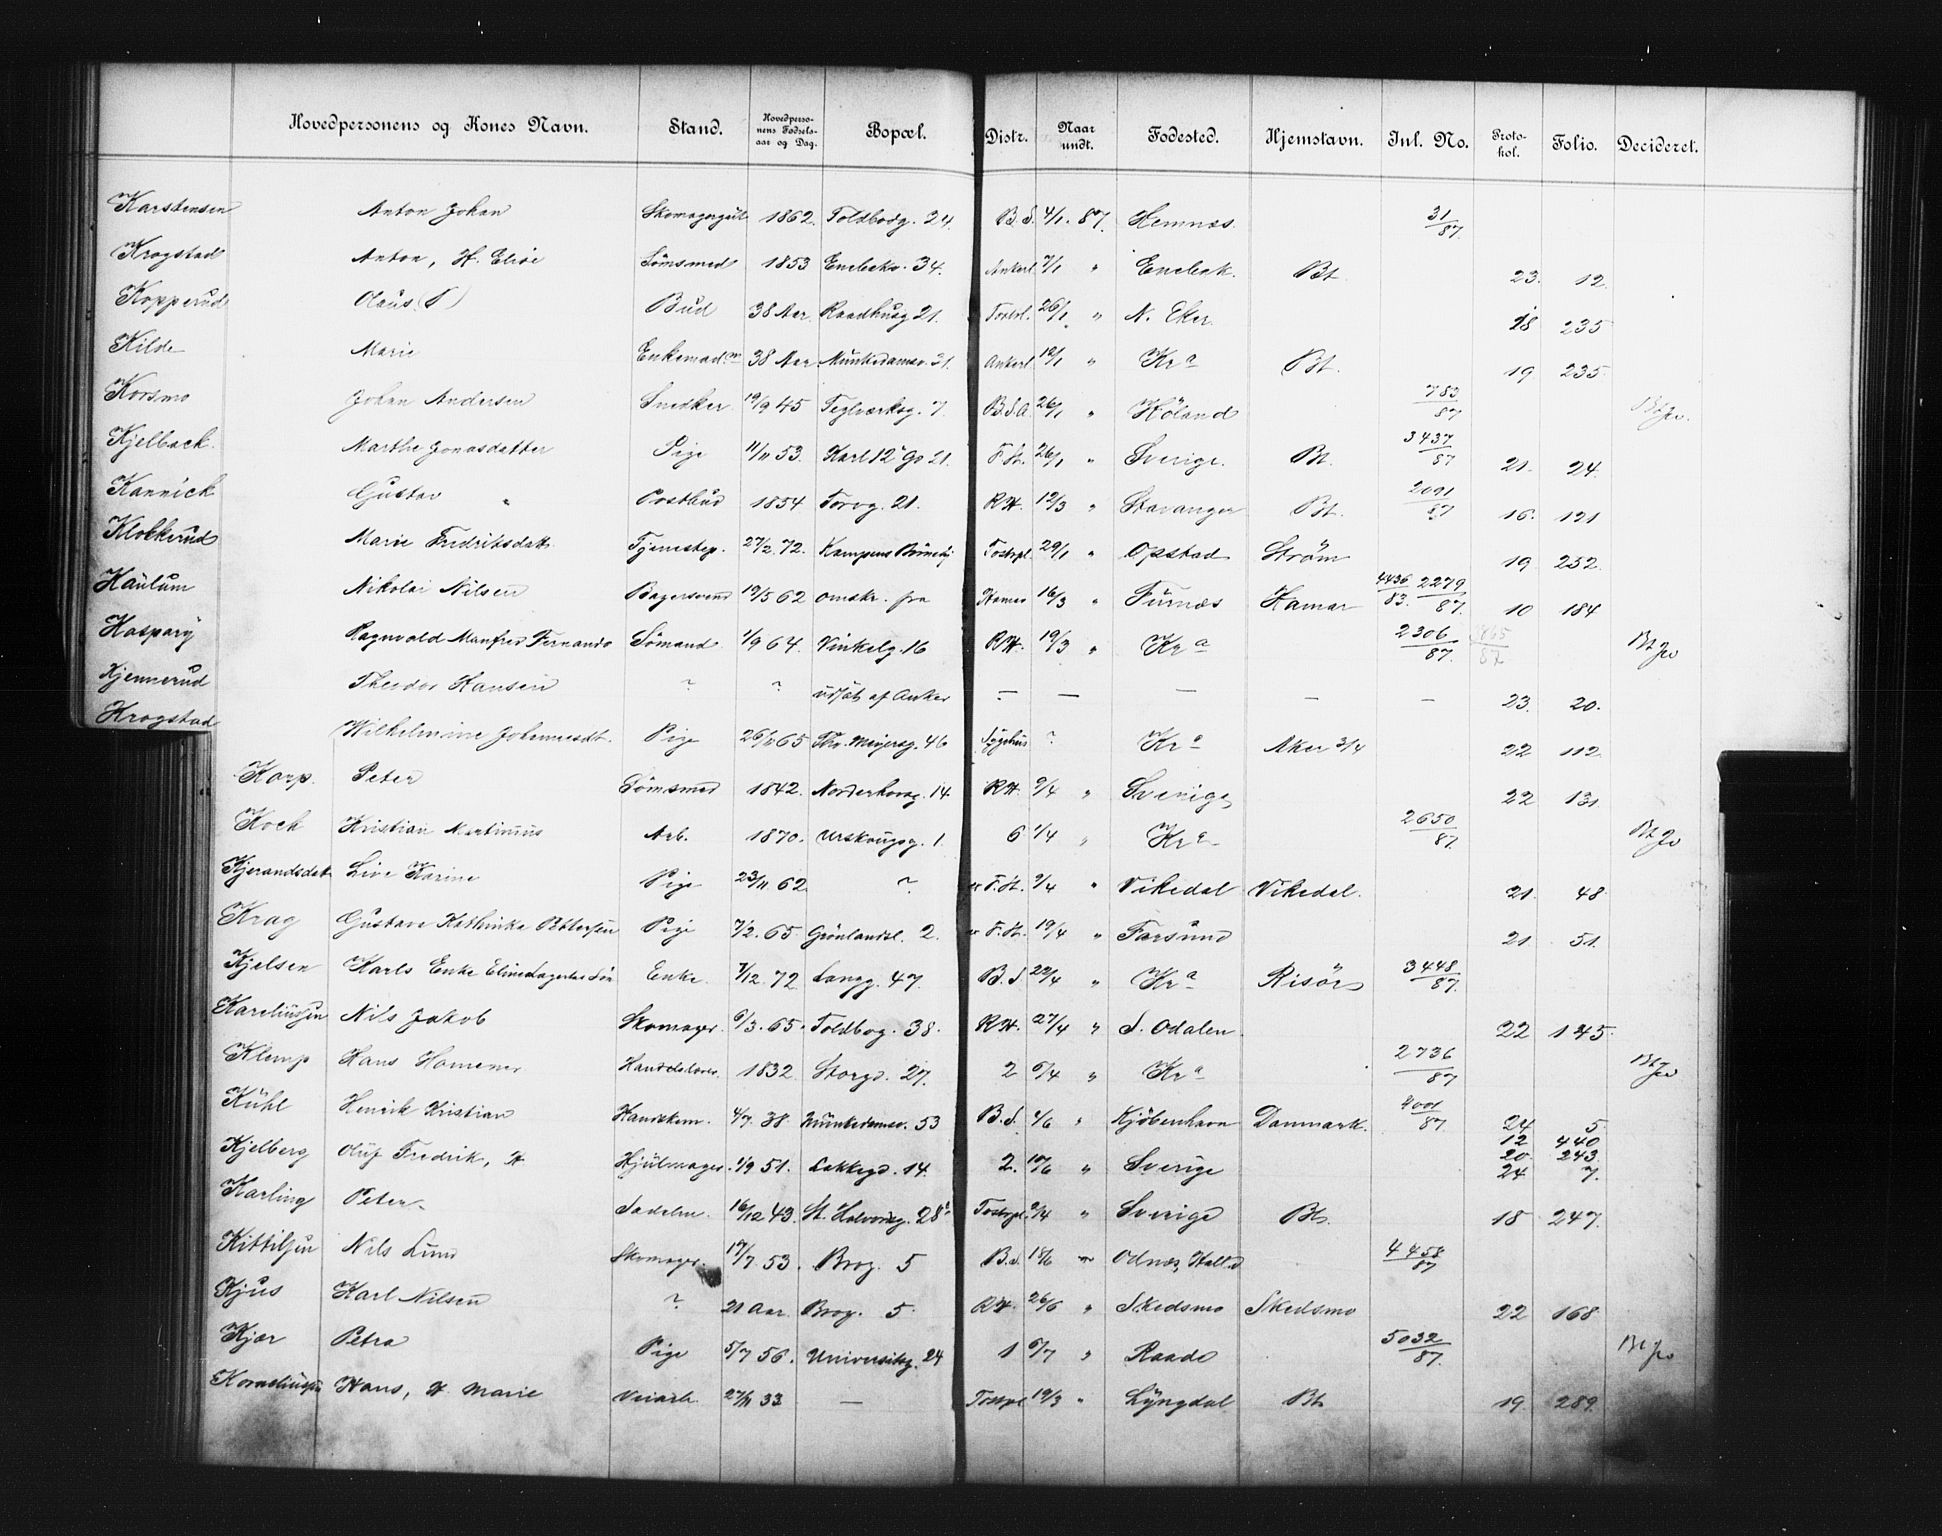 Hovedpersonens og Kones Navn. Stand. Hovedperso-nens Fødsels-aar og Dag. Bopæl. Distr. Naar undt. Fødested. Hjemstavn. Inl. No. Proto-kol. Folio. Decideret.
Karstensen Anton Johan Skomagergut 1862. Toldbodg. 24. B.S. 4/1. 87. Hemnæs. 31/87.
Krogstad Anton, H. Elise Tömsmed 1853 Enebakv. 34. Ankerl. 7/1 " Enebak. Bt. 23. 12.
Kopperud Olaus (P) Bud 38 Aar. Raadhusg 21. Tostrl. 26/1 " N. Eker. 18 235
Kilde Marie Enkemad.m 38 Aar. Munkedamsv. 31. Ankerl 12/1 " Kr a Bt. 19. 235.
Korsmo Johan Andersen Snedker 19/9 45 Teglverksg. 7. B.S.A. 26/1 " Höland 783/87 Bt Jo.
Kjelback. Marthe Jonasdatter Pige 11/11 53. Karl 12 Gs 21. F.H. 26/1 " Sverige. Bt. 3437/87 21. 24.
Kannick Gustav " Postbud 1854 Torvg. 21. RH. 12/3 " Stavanger Bt. 2091/87 16. 121
Klokkerud Marie Fredriksdatt. Tjenestep. 27/2. 72. Kampens Börnehj Tostrpl. 29/1 " Opstad Ström 19 252.
Haulum Nikolai Nilsen Bagersvend 19/5 62 omstr. fra Hamar 16/3 " Furnæs Hamar 4436/83. 2279/87. 10 184
Kaspary Ragnvald Manfred Fernando Sömand 1/9 64. Vinkelg. 16 RH. 19/3 " Kr a 2306/87. 1865/87 Bt Jo
Kjennerud Theodor Hansen ? ? udsat af Anker — — — — — 23. 20.
Krogstad Wilhelmine Johannesdt. Pige 26/11 65 Thv. Meyersg. 46 Sygehus ? Kr a Aker 3/4 22 112
Karp. Peter Tömsmed 1842. Norderhovsg. 14 RH. 2/4 " Sverige 22 131
Koch Kristian Martinius Arb. 1870. Urskougsg. 1. 6 1/4 " Kr a 2650/87. Bt Jo
Kjerandsdat. Live Karine Pige 23/11 62 ? F.H. 9/4 " Vikedal Vikedal. 21. 48
Krag Gustava Kathinka Pettersen Pige 7/2. 65 Grönlandsl. 2. F.H. 19/4 " Farsund 21. 51.
Kjelsen Karls Enke Eline Enke. 7/12. 72 Langg. 47. B.S 22/4 " Kr a Risör 3448/87.
Kareliussen Nils Jakob Skomager. 6/3. 65. Toldbog. 38. RH. 27/4 " S. Odalen. 22 145.
Klemp Hans 1832 Storgd. 27. 2 6/4 " Kr a 2736/87 Bt Jo
Kühl Henrik Kristian Handskem. 4/7. 38. Munkedamsv. 53 B.S. 2/6 " Kjöbenhavn Danmark. 4001/87 24 5.
Kjelberg Oluf Fredrik, H Hjulmager. 1/9 51. Lakkegd. 14. 2. 10/6 " Sverige 12 440 20. 243. 24 7.
Karling Peter. Sadelm. 16/12 43. St. Halvardsg. 28 Tostrpl. 2/4 " Sverige Bt. 18 247.
Kittilsen Nils Lund Skomager. 17/7 53. Brog. 5 B.S. 15/6 " Odnæs, 4458/87
Kjus Karl Nilsen ? 21 Aar. Brog. 5. RH. 26/6 " Skedsmo Skedsmo 22 168
Kjær Petra Pige 5/7 56. Universitsg. 24 1 6/7 " Raade 5032/87. Bt Jo
Korneliussen Hans, H. Marie Veiarb. 27/11 33 — Tostrpl 19/3 " Lyngdal Bt 19. 289.